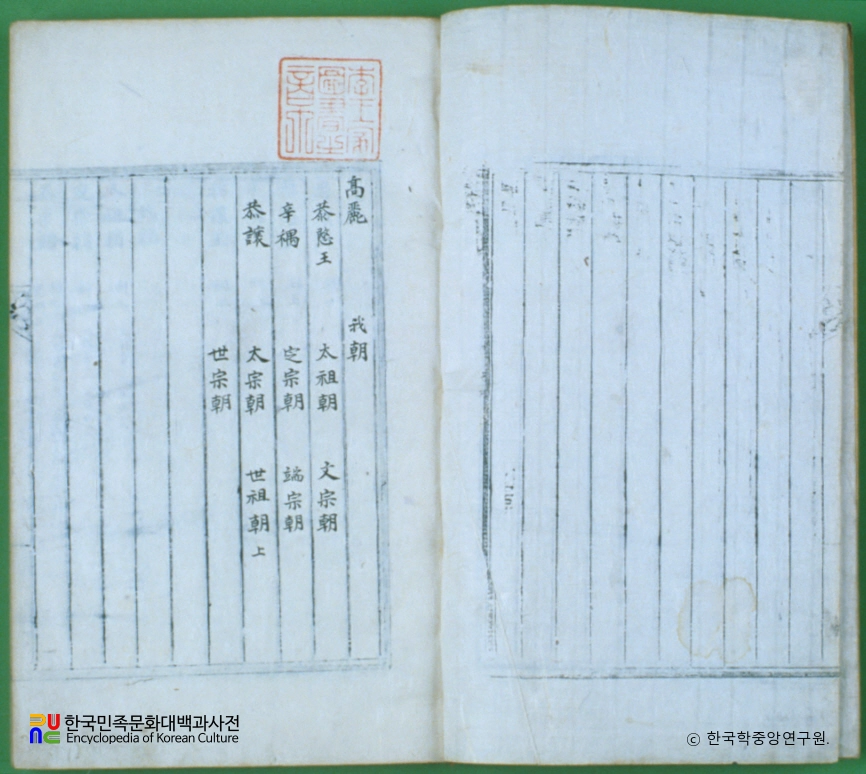 李王家
圖書之
章
高麗 我朝
恭愍王 太祖朝 文宗朝
辛禑 定宗朝 端宗朝
恭讓 太宗朝 世祖朝上
世宗朝
한국민족문화대백과사전
Encyclopedia of Korean Culture
© 한국학중앙연구원.